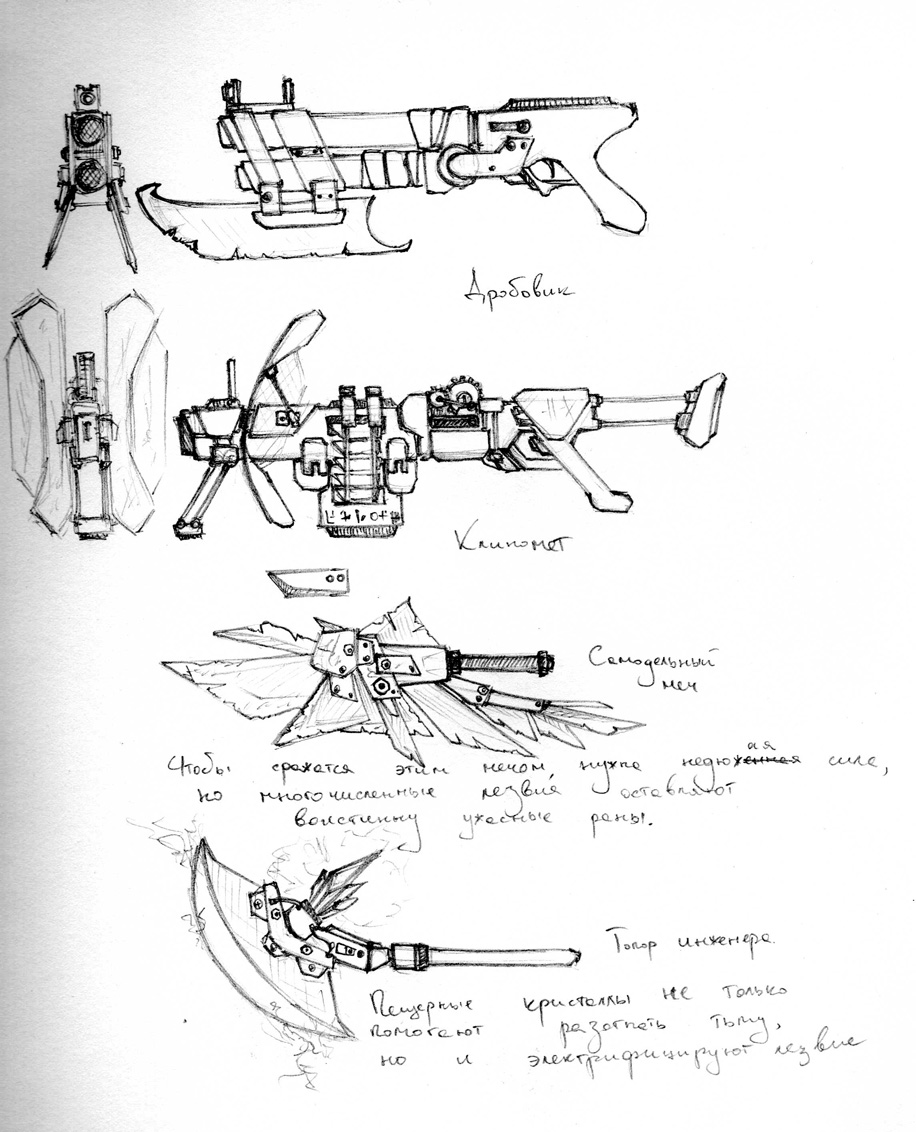 Дробовик
Клиномет
Самодельный
меч
Чтобы сражатся этим мечом, нужна недюжая сила,
но многочисленные лезвия оставляют
воистинну ужасные раны.
Топор инженера.
Пещерные кристаллы не только
помогают разогнать тьму,
но и электрифицируют лезвие